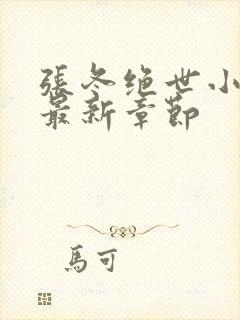 張冬绝世小
最新章節
馬可